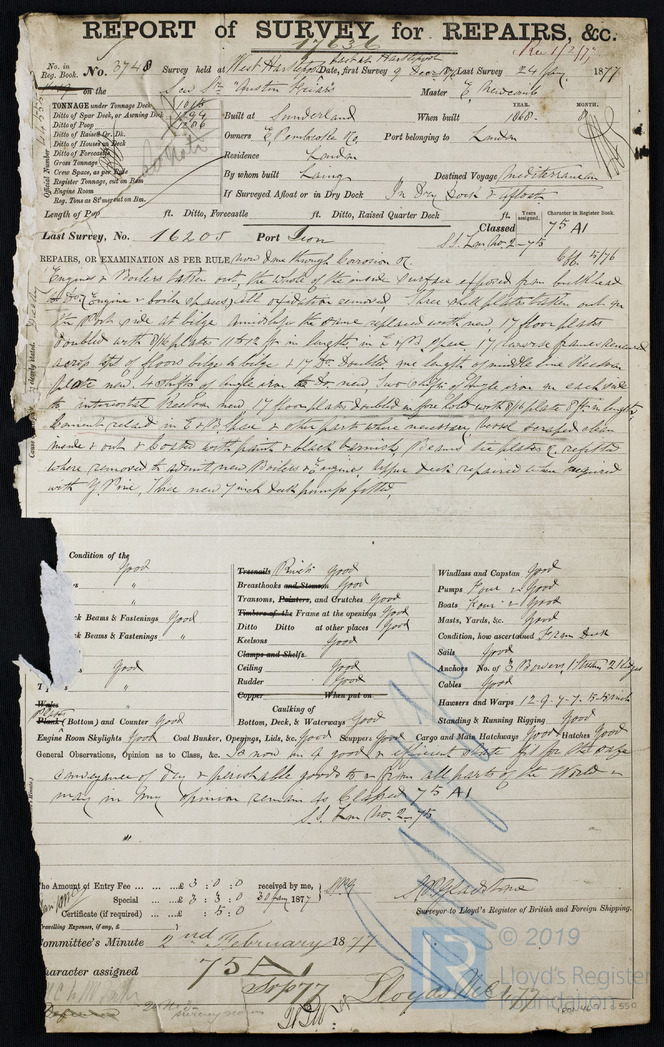 REPORT of SURVEY for REPAIRS, &c.
17636
No. in Reg. Book. No. 3748 Survey held at West Hartlepool Date, first Survey 9 Last Survey 24 1877
on the Master E.
TONNAGE under Tonnage Deck 1015
Ditto of Spar Deck, or Awning Deck
Ditto of Poop
Ditto of Raised Qr. Dk.
Ditto of Houses on Deck
Ditto of Forecastle
Gross Tonnage
Crew Space, as per Rule
Register Tonnage, cut on Beam
Engine Room
Reg. Tons as Stmr cut on Bm.
Official Number
Built at Sunderland When built YEAR. 1868 MONTH. 8
Owners E. Pembroke Co. Port belonging to London
Residence London
By whom built Laing Destined Voyage Mediterranean
If Surveyed Afloat or in Dry Dock In Dry Dock & afloat
Length of Poop ft. Ditto, Forecastle ft. Ditto, Raised Quarter Deck ft. Years assigned. Character in Register Book.
Classed 75 A1
Last Survey, No. 16205 Port Iron S.S. Lon No. 2-75
REPAIRS, OR EXAMINATION AS PER RULE, now done through Corrosion &c. 5/76
Engines & Boilers taken out, the whole of the inside surface exposed from bulkhead
to Do. Engine & boiler spaces, all oxidation removed, Three plates taken out on
the Port side at bilge amidships the same replaced with new, 17 floorplates
doubled with 8/16 plates 11 to 12 ft in length in E & B Space, 17 reverse frames renewed
across top of floors bilge to bilge & 17 Do. doubled, one length of middle line Keelson
plate new, 4 lengths of angle iron to Do. new, Two lengths of angle iron on each side
to intercostal Keelson new, 17 floorplates doubled in fore hold with 8/16 plate 8 ft in length,
Cement relaid in E & B Space & other parts where necessary, vessel scraped clean
inside & out & coated with paint & black varnish, Beams tie plates &c. refitted
where removed to admit new Boilers & Engines, upper deck repaired where required
with Y. Pine, Three new 7 inch deck pumps fitted,
Condition of the
Good
"
"
Deck Beams & Fastenings Good
Deck Beams & Fastenings "
Good
"
Wales
Plank (Bottom) and Counter Good
Treenails Rivets Good
Breasthooks and Stemson Good
Transoms, Pointers, and Crutches Good
Timbers of the Frame at the openings Good
Ditto Ditto at other places Good
Keelsons Good
Clamps and Shelfs
Ceiling Good
Rudder Good
Copper When put on
Caulking of
Bottom, Deck, & Waterways Good
Windlass and Capstan Good
Pumps Four Good
Boats Four Good
Masts, Yards, &c. Good
Condition, how ascertained From Deck
Sails Good
Anchors No. of 3 Bowers, 1 Stream, 2 Kedges
Cables Good
Hawsers and Warps 12-9-7-7-
Standing & Running Rigging Good
Engine Room Skylights Good Coal Bunker, Openings, Lids, &c. Good Scuppers Good Cargo and Main Hatchways Good Hatches Good
General Observations, Opinion as to Class, &c. Is now in a good & efficient state fit for the safe
conveyance of dry & perishable goods to & from all parts of the World &
may in my opinion remain as Classed 75 A1
S.S. Lon No. 2-75
The Amount of Entry Fee ... ... ...£ 3 : 0 : 0 received by me,
Special ... ...£ 3 : 3 : 0 30 Jany 1877
Certificate (if required) ... : 5 : 0
Travelling Expenses, if any, £
Surveyor to Lloyd's Register of British and Foreign Shipping.
Committee's Minute 2nd February 1877
Character assigned 75 A1
© 2019
Lloyd's Register
Foundation